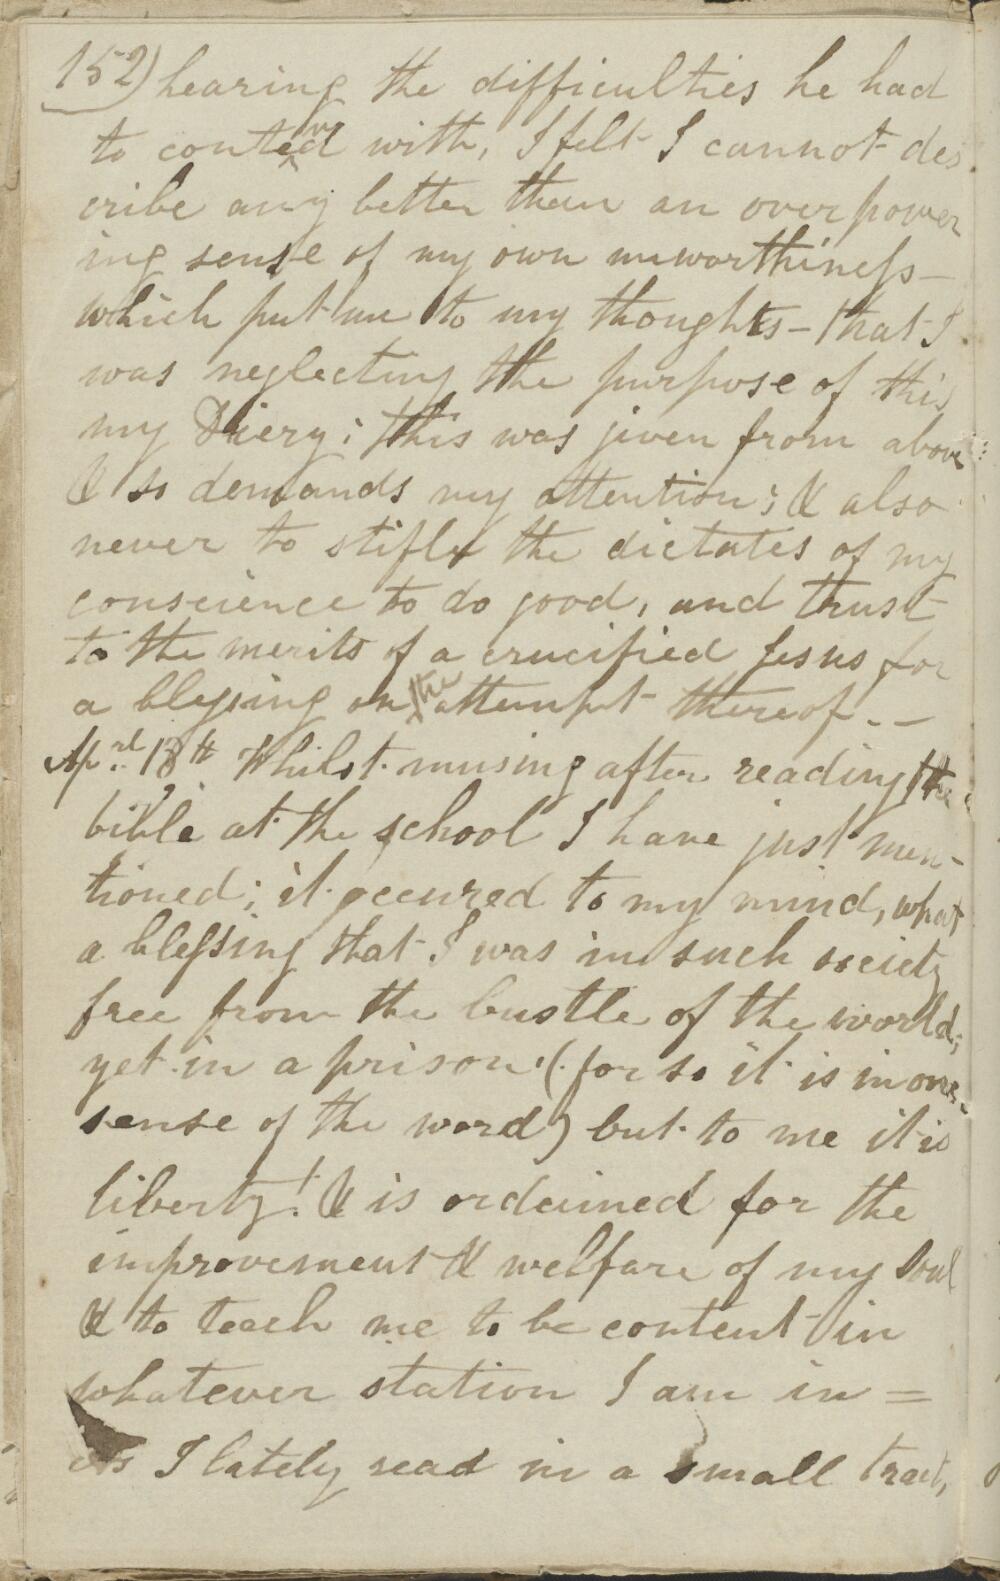 152) hearing the difficulties he had
to contend with, I felt I cannot des
cribe any better than an over power
ing sense of my own unworthiness—
which put me to my thoughts – that I
was neglecting the purpose of this
my Diery; this was given from above
& so demands my attention; & also
never to stifle the dictates of my
conscience to do good, and trust
to the merits of a crucified Jesus for
a blessing on the attempt thereof. —
18th Whilst musing after reading the
bible at the school I have just men-
tioned; it occured to my mind, what
a blessing that I was in such society
free from the bustle of the world;
yet in a prison (for so it is in one
sense of the word) but to me it is
liberty! & is ordained for the
improvement & welfare of my soul
& to teach me to be content in
whatever station I am in =
As I lately read in a small tract,